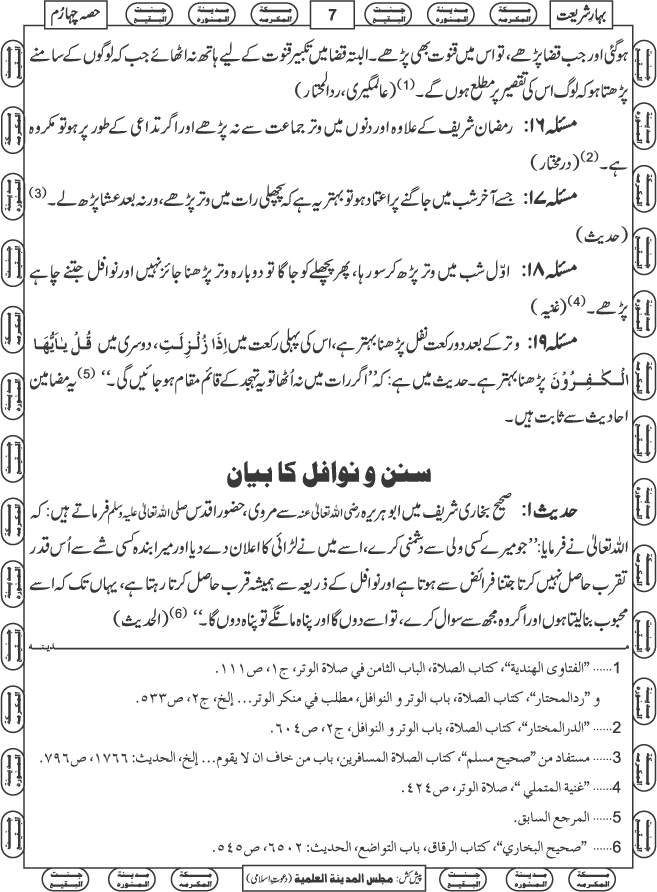 بہارِ شریعت
جنت البقیع
مدینۃ المنورہ
مکۃ المکرمہ
7
جنت البقیع
مدینۃ المنورہ
مکۃ المکرمہ
حصہ چہارُم
ہوگئی اور جب قضا پڑھے، تو اس میں قنوت بھی پڑھے۔ البتہ قضا میں تکبیر قنوت کے لیے ہاتھ نہ اٹھائے جب کہ لوگوں کے سامنے
پڑھتا ہو کہ لوگ اس کی تقصیر پر مطلع ہوں گے۔ (1) (عالمگیری، ردالمحتار)
مسئلہ ۱۶: رمضان شریف کے علاوہ اور دنوں میں وتر جماعت سے نہ پڑھے اور اگر تداعی کے طور پر ہو تو مکروہ
ہے۔ (2) (درمختار)
مسئلہ ۱۷: جسے آخر شب میں جاگنے پر اعتماد ہو تو بہتر یہ ہے کہ پچھلی رات میں وتر پڑھے، ورنہ بعد عشا پڑھ لے۔ (3)
(حدیث)
مسئلہ ۱۸: اوّل شب میں وتر پڑھ کر سو رہا، پھر پچھلے کو جاگا تو دوبارہ وتر پڑھنا جائز نہیں اور نوافل جتنے چاہے
پڑھے۔ (4) (غنیہ)
مسئلہ ۱۹: وتر کے بعد دو رکعت نفل پڑھنا بہتر ہے، اس کی پہلی رکعت میں اِذَا زُلْزِلَتِ، دوسری میں قُلْ یٰۤاَیُّهَا
الْكٰفِرُوْنَ پڑھنا بہتر ہے۔ حدیث میں ہے: کہ ’’اگر رات میں نہ اُٹھا تو یہ تہجد کے قائم مقام ہو جائیں گی۔‘‘ (5) یہ مضامین
احادیث سے ثابت ہیں۔
سنن و نوافل کا بیان
حدیث ۱: صحیح بخاری شریف میں ابو ہریرہ رضی اللہ تعالیٰ عنہ سے مروی، حضور اقدس صلی اللہ تعالیٰ علیہ وسلم فرماتے ہیں: کہ
اللہ تعالیٰ نے فرمایا: ’’جو میرے کسی ولی سے دشمنی کرے، اسے میں نے لڑائی کا اعلان دے دیا اور میرا بندہ کسی شے سے اُس قدر
تقرب حاصل نہیں کرتا جتنا فرائض سے ہوتا ہے اور نوافل کے ذریعہ سے ہمیشہ قرب حاصل کرتا رہتا ہے، یہاں تک کہ اسے
محبوب بنا لیتا ہوں اور اگر وہ مجھ سے سوال کرے، تو اسے دوں گا اور پناہ مانگے تو پناہ دوں گا۔‘‘ (6) (الحدیث)
مدینہ
1...... ”الفتاوی الهندية“، كتاب الصلاة، الباب الثامن في صلاة الوتر، ج۱، ص۱۱۱.
و ”ردالمحتار“، كتاب الصلاة، باب الوتر و النوافل، مطلب في منكر الوتر... إلخ، ج۲، ص۵۳۳.
2...... ”الدرالمختار“، كتاب الصلاة، باب الوتر و النوافل، ج۲، ص۶۰۴.
3...... مستفاد من ”صحيح مسلم“، كتاب الصلاة المسافرين، باب من خاف ان لا يقوم... إلخ، الحديث: ۱۷۶۶، ص۷۹۶.
4...... ”غنية المتملي“، صلاة الوتر، ص۴۲۴.
5...... المرجع السابق.
6...... ”صحيح البخاري“، كتاب الرقاق، باب التواضع، الحديث: ۶۵۰۲، ص۵۴۵.
جنت البقیع
مدینۃ المنورہ
مکۃ المکرمہ
پیش کش: مجلس المدینۃ العلمیۃ (دعوتِ اسلامی)
جنت البقیع
مدینۃ المنورہ
مکۃ المکرمہ